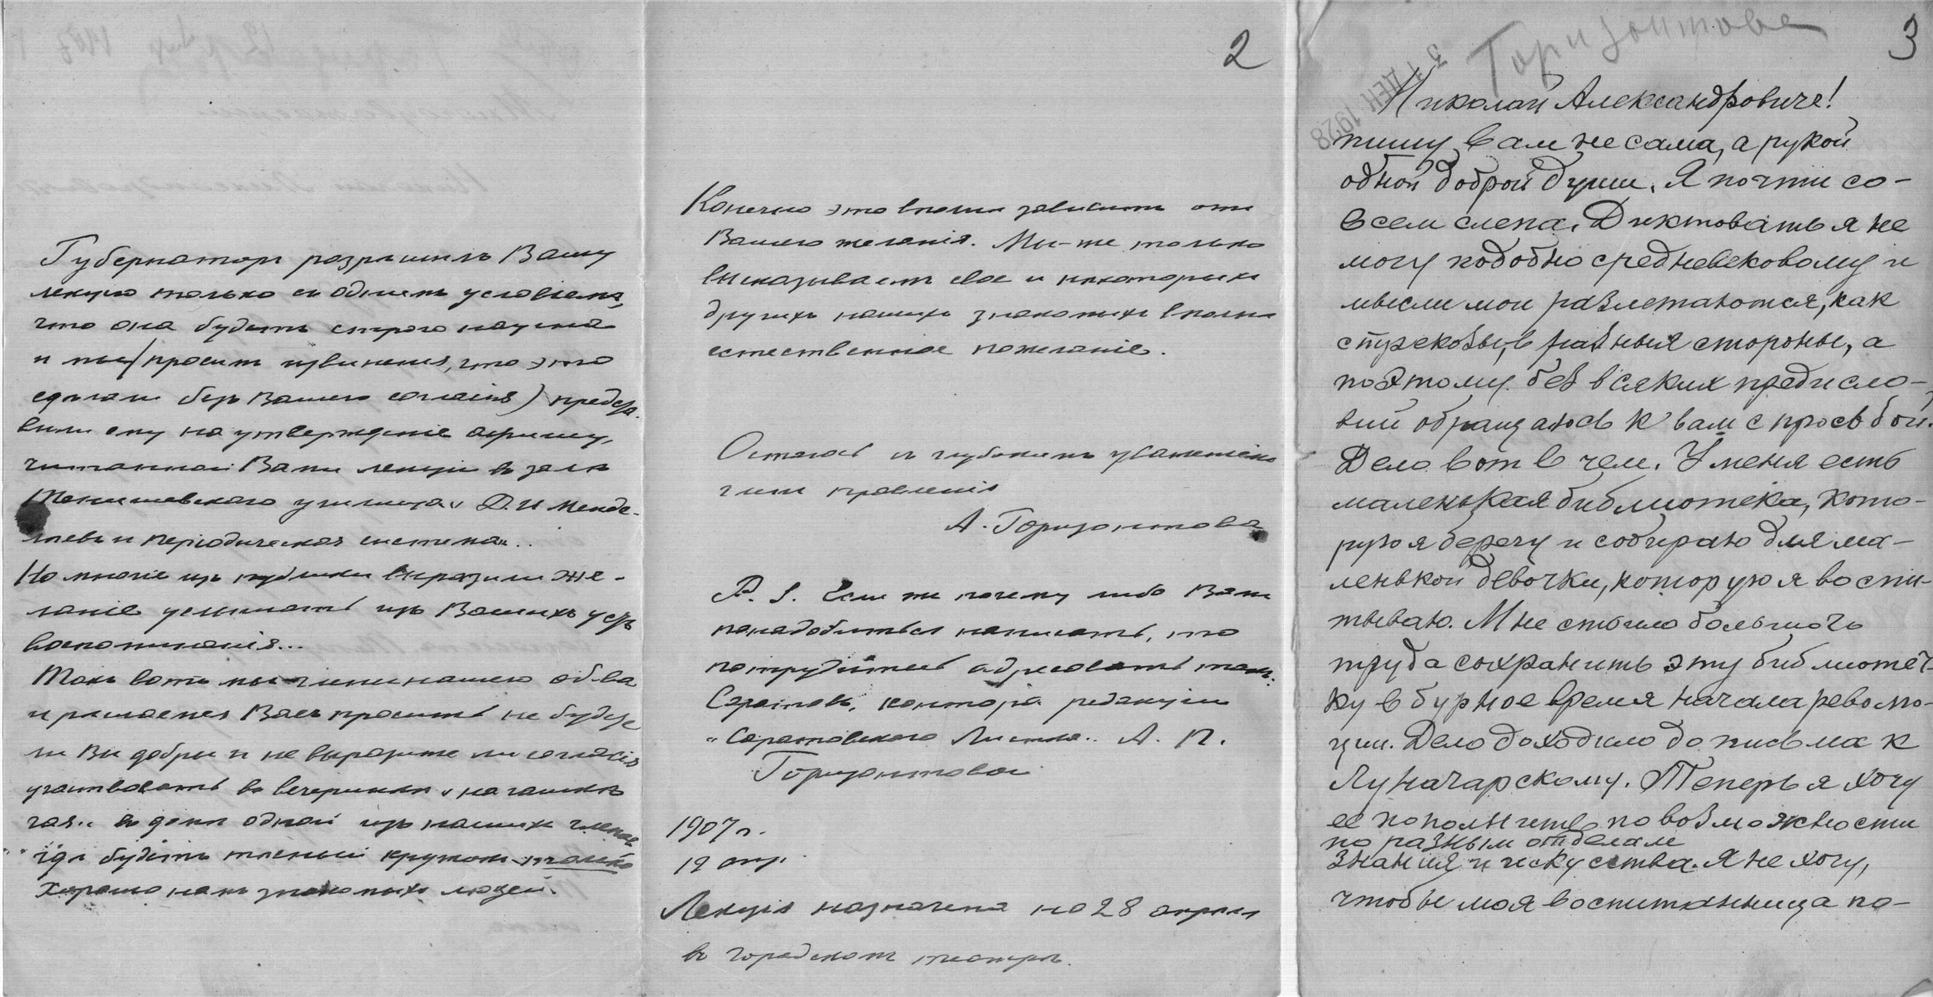 Губернаторъ разрѣшилъ Вашу
лекцію только съ однимъ условіемъ,
что она будетъ строго научна
и мы (просимъ извиненія, что это
сдѣлали безъ Вашего согласія) предста-
вили ему на утвержденіе афишу,
читанной Вами лекціи въ залѣ
Тенишевскаго училища „Д. И. Менде-
лѣевъ и періодическая система“.
Но многіе изъ публики выразили же-
ланіе услышать изъ Вашихъ устъ
воспоминанія...
Такъ вотъ мы члены нашего об-ва
и рѣшаемся Васъ просить не будете
ли Вы добры и не выразите ли согласія
участвовать въ вечеринкѣ „на чашкѣ
чая“ въ домѣ одной изъ нашихъ членовъ
гдѣ будетъ тѣсный кружокъ только
хорошо намъ знакомыхъ людей.
2
Конечно это вполнѣ зависитъ отъ
Вашего желанія. Мы-же только
высказываемъ свое и нѣкоторыхъ
другихъ нашихъ знакомыхъ вполнѣ
естественное пожеланіе.
Остаюсь съ глубокимъ уваженіемъ
членъ правленія
А. Горизонтова
P. S. Если же почему либо Вамъ
понадобиться написать, то
потрудитесь адресовать такъ:
Саратовъ, контора редакціи
„Саратовскаго Листка“. А. П.
Горизонтовой
1907 г.
19 апр.
Лекція назначена на 28 апрѣля
въ городскомъ театрѣ.
Горизонтова
3
ДЕК 1928
Николай Александрович!
пишу Вам не сама, а рукой
одной доброй души. Я почти со-
всем слепа. Диктовать я не
могу подобно средневековому и
мысли мои разлетаются, как
стрекозы, в разныя стороны, а
поэтому без всяких предисло-
вий обращаюсь к вам с просьбой.
Дело вот в чем. У меня есть
маленькая библиотека, кото-
рую я берегу и собираю для ма-
ленькой девочки, которую я воспи-
тываю. Мне стоило большого
труда сохранить эту библиотеч-
ку в бурное время начала револю-
ции. Дело доходило до письма к
Луначарскому. Теперь я хочу
ее пополнить по возможности
по разным отделам
знания и искусства. Я не хочу,
чтобы моя воспитанница по-